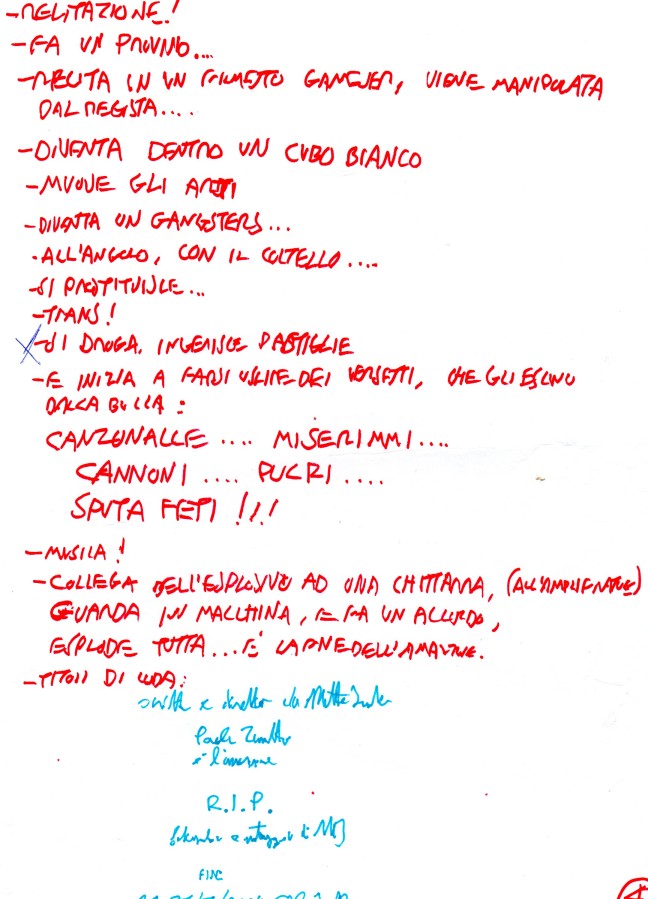 -RECITAZIONE!
-FA UN PROVINO...
-RECITA IN UN FILMETTO GANGSTER, VIENE MANIPOLATA
DAL REGISTA....
-DIVENTA DENTRO UN CUBO BIANCO
-MUOVE GLI ARTI
-DIVENTA UN GANGSTERS...
-ALL'ANGOLO, CON IL COLTELLO....
-SI PROSTITUISCE...
-TRANS!
-SI DROGA. INGERISCE PASTIGLIE
-E INIZIA A FARSI USCIRE DEI VERSETTI, CHE GLI ESCONO
DALLA BOCCA:
CANZONALLE .... MISERIMMI....
CANNONI .... PUCRI ....
SPUTA FETI !!!
-MUSICA!
-COLLEGA DELL'ESPLOSIVO AD UNA CHITARRA, (ALL'AMPLIFICATORE)
GUARDA IN MACCHINA, E FA UN ACCORDO,
ESPLODE TUTTA... E' LA FINE DELL'AMAZZONE.
-TITOLI DI CODA:
R.I.P.
FINE